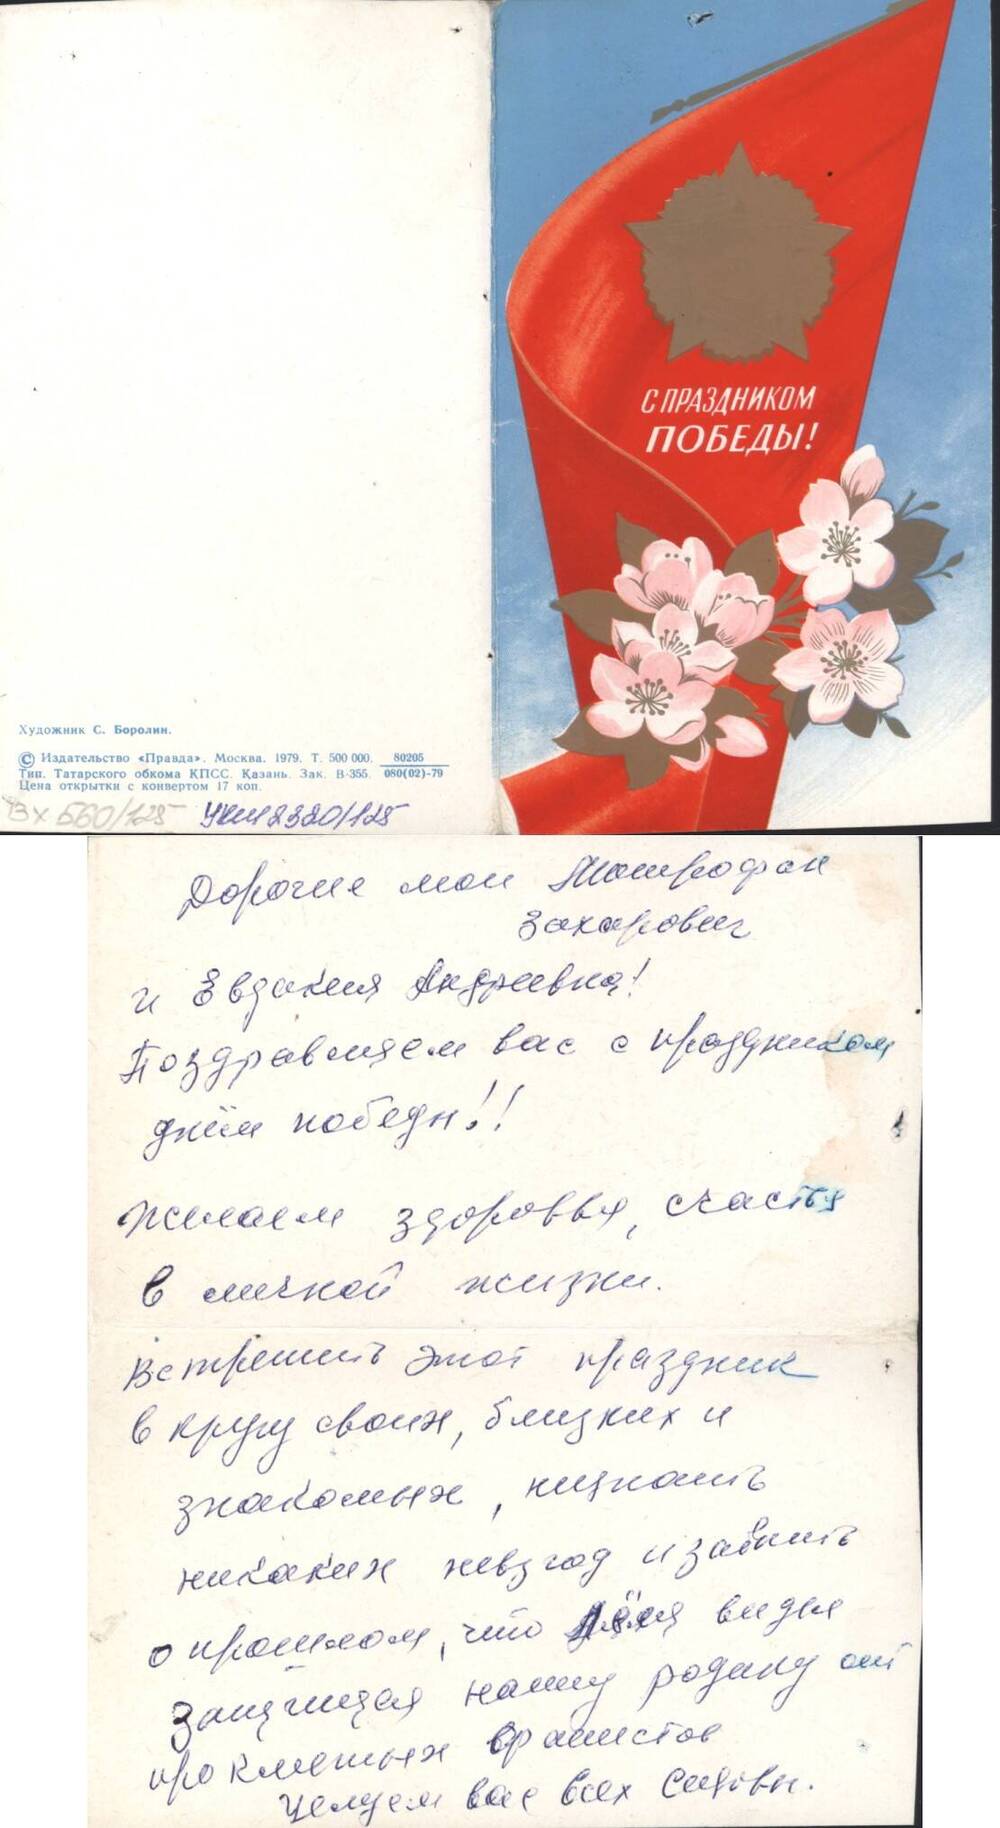 С ПРАЗДНИКОМ
ПОБЕДЫ!
Художник С. Боролин.
© Издательство «Правда». Москва. 1979. Т. 500 000. 80205
Тип. Татарского обкома КПСС. Казань. Зак. В-355. 080(02)-79
Цена открытки с конвертом 17 коп.
Вх 560/125 УКМ 2320/125
Дорогие мои Митрофан
Захарович
и Евдокия Андреевна!
Поздравляем вас с праздником
днём победы!!
Желаем здоровья, счастья
в личной жизни.
Встретить этот праздник
в кругу своих, близких и
знакомых,
никаких невзгод и забыть
о прошлом, что Лёля видел
защищая нашу родину от
проклетых фашистов
Целуем вас всех